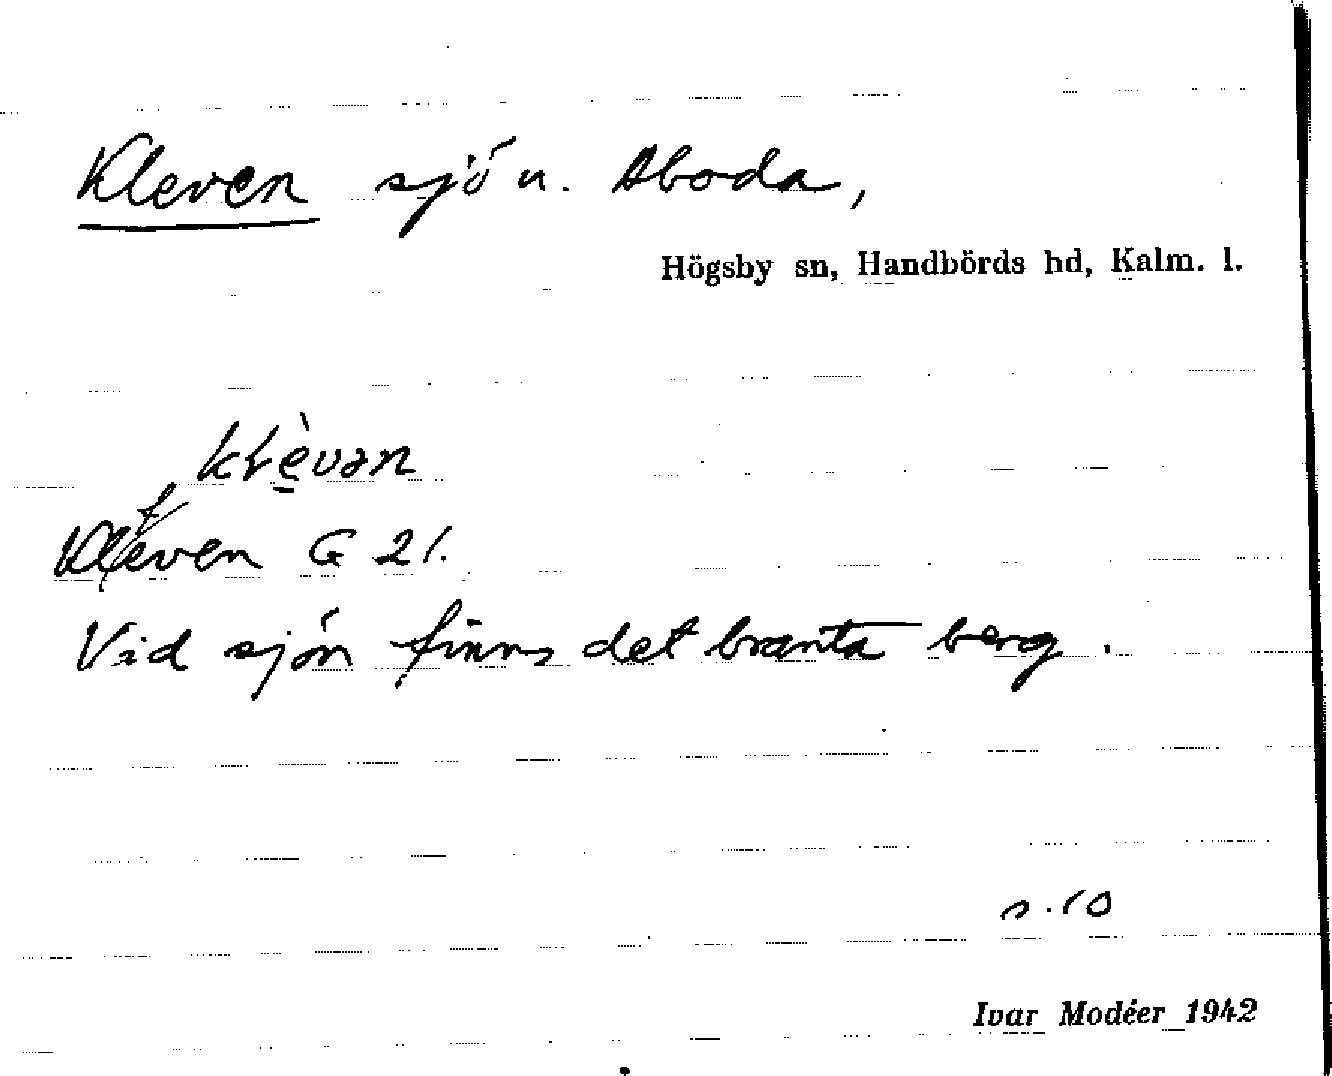 Kleven sjö n. Aboda,
Högsby sn, Handbörds hd, Kalm. l.
klèvan
f
Kleven G 21.
Vid sjön finns det branta berg.
s. 10
Ivar Modéer 1942